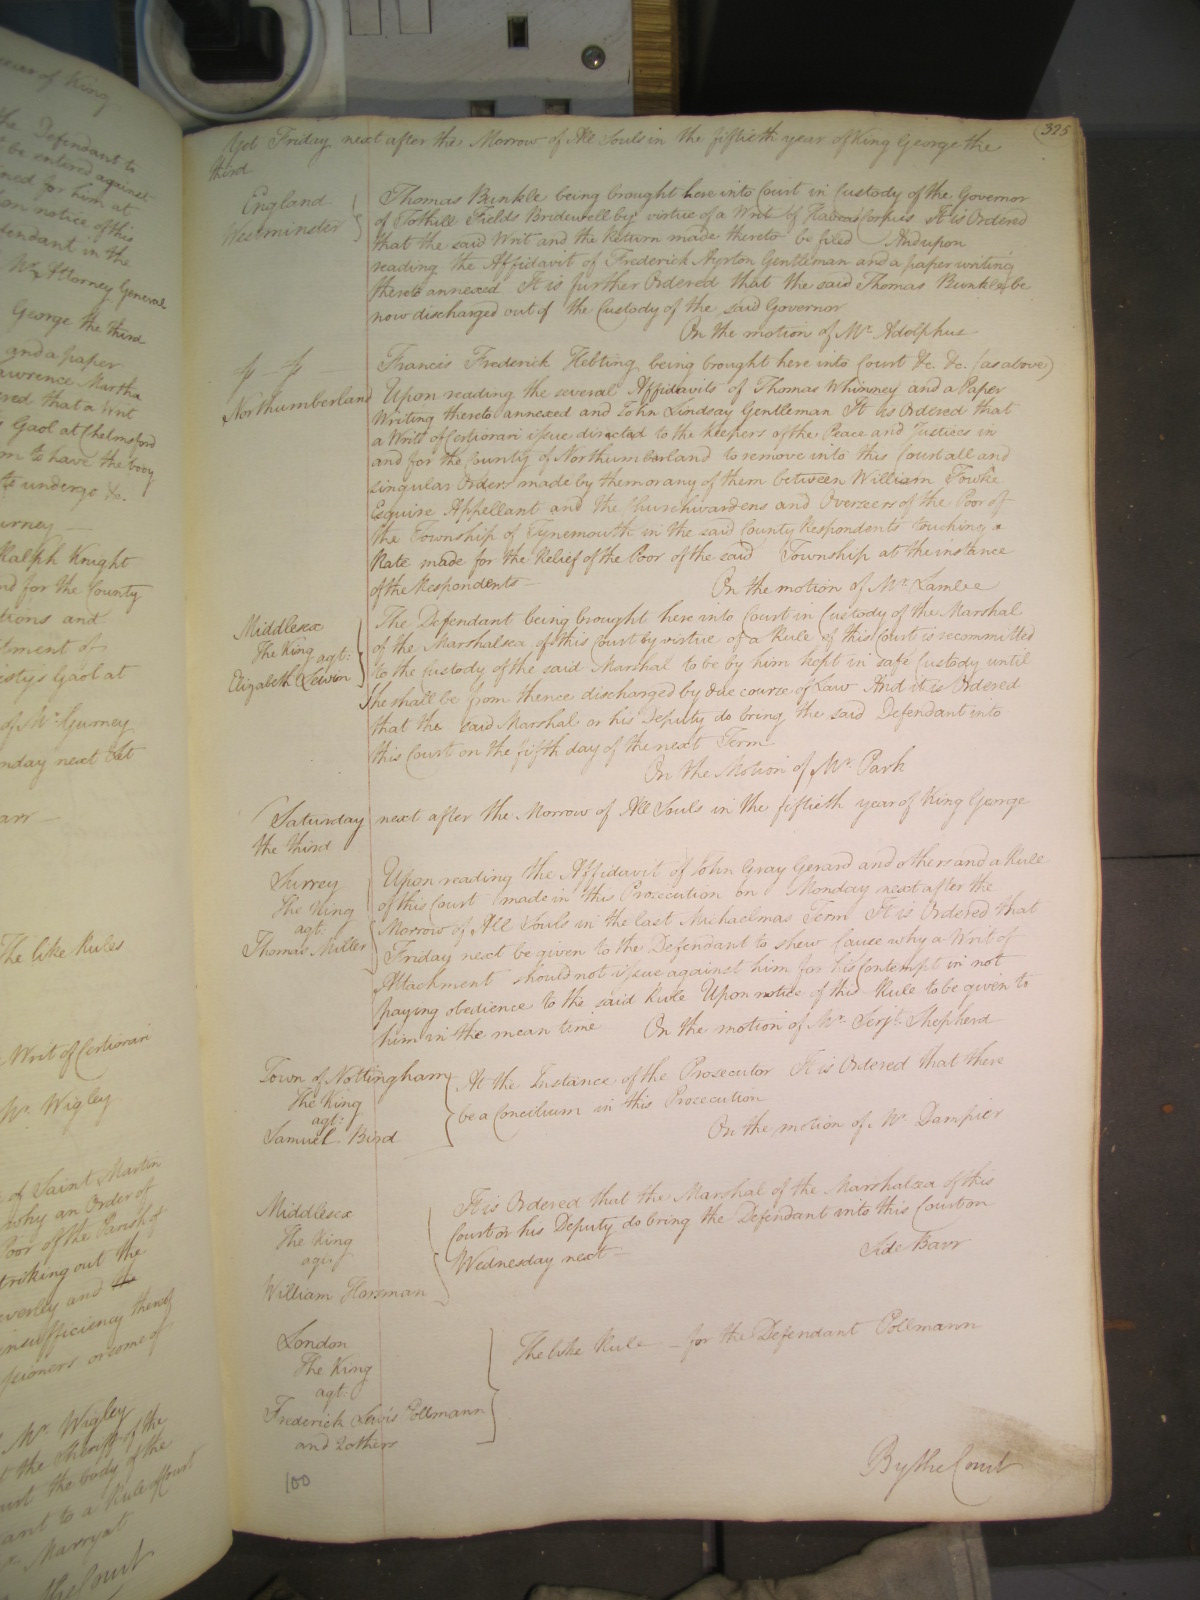 year of King
the Defendant to
be entered against
for him at
on notice of this
Defendant in the
Mr Attorney General
George the third
and a paper
Lawrence Martha
ordered that a Writ
Gaol at Chelmsford
to have the body
to undergo &c.
Gurney
Ralph Knight
and for the County
and
Gaol at
of Mr Gurney
Monday next
The like Rules
Writ of Certiorari
Mr. Wigley
of Saint Martin
why an Order of
Poor of the Parish of
striking out the
and the
insufficiency thereof
or some of
Mr Wigley
the Sheriff of the
the body of the
to a Rule of Court
Marryat
the Court
325
Yet Friday next after the Morrow of All Souls in the fiftieth year of King George the
third
England
Westminster
Thomas Bunkle being brought here into Court in Custody of the Governor
of Tothill Fields Bridewell by virtue of a Writ of Habeas Corpus It is Ordered
that the said Writ and the Return made thereto be filed And upon
reading the Affidavit of Frederick Ayrton Gentleman and a paper writing
thereto annexed It is further Ordered that the said Thomas Bunkle be
now discharged out of the Custody of the said Governor
On the motion of Mr. Adolphus
Francis Frederick Hebting being brought here into Court &c. &c. (as above)
Northumberland
Upon reading the several Affidavits of Thomas Whinney and a Paper
Writing thereto annexed and John Lindsay Gentleman It is Ordered that
a Writ of Certiorari issue directed to the Keepers of the Peace and Justices in
and for the County of Northumberland to remove into this Court all and
singular Orders made by them or any of them between William Fowke
Esquire Appellant and the Churchwardens and Overseers of the Poor of
the Township of Tynemouth in the said County Respondents touching a
Rate made for the Relief of the Poor of the said Township at the instance
of the Respondents On the motion of Mr. Lambe
Middlesex
The King
agt.
Elizabeth
The Defendant being brought here into Court in Custody of the Marshal
of the Marshalsea of this Court by virtue of a Rule of this Court is recommitted
to the Custody of the said Marshal to be by him kept in safe Custody until
She shall be from thence discharged by due course of Law And it is Ordered
that the said Marshal or his Deputy do bring the said Defendant into
this Court on the fifth day of the next Term
On the Motion of Mr. Park
Saturday next after the Morrow of All Souls in the fiftieth year of King George
the third
Surrey
The King
agt.
Thomas Miller
Upon reading the Affidavit of John Gray Gerard and others and a Rule
of this Court made in this Prosecution on Monday next after the
Morrow of All Souls in the last Michaelmas Term It is Ordered that
Friday next be given to the Defendant to shew Cause why a Writ of
Attachment should not issue against him for his Contempt in not
paying obedience to the said Rule Upon notice of this Rule to be given to
him in the mean time On the motion of Mr. Serjt. Shepherd
Town of Nottingham
The King
agt.
Samuel Bird
At the Instance of the Prosecutor It is Ordered that there
be a Concilium in this Prosecution
On the motion of Mr. Dampier
Middlesex
The King
agt.
William Horsman
It is Ordered that the Marshal of the Marshalsea of this
Court or his Deputy do bring the Defendant into this Court on
Wednesday next
Side Barr
London
The King
agt.
Frederick Lewis Pollmann
and 2 others
The like Rule for the Defendant Pollmann
By the Court
100